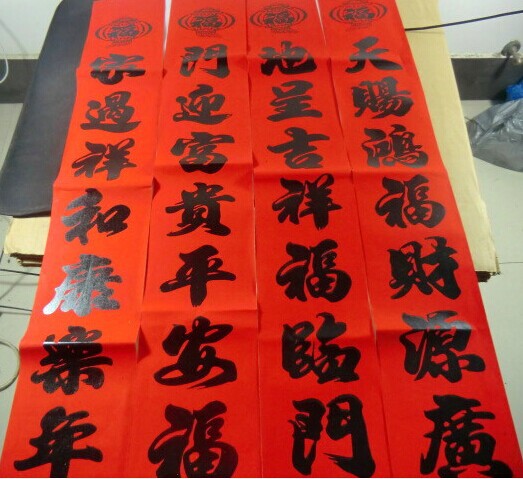 福
天賜鴻福財源廣
福
地呈吉祥福臨門
福
門迎富貴平安福
福
家過祥和康樂年